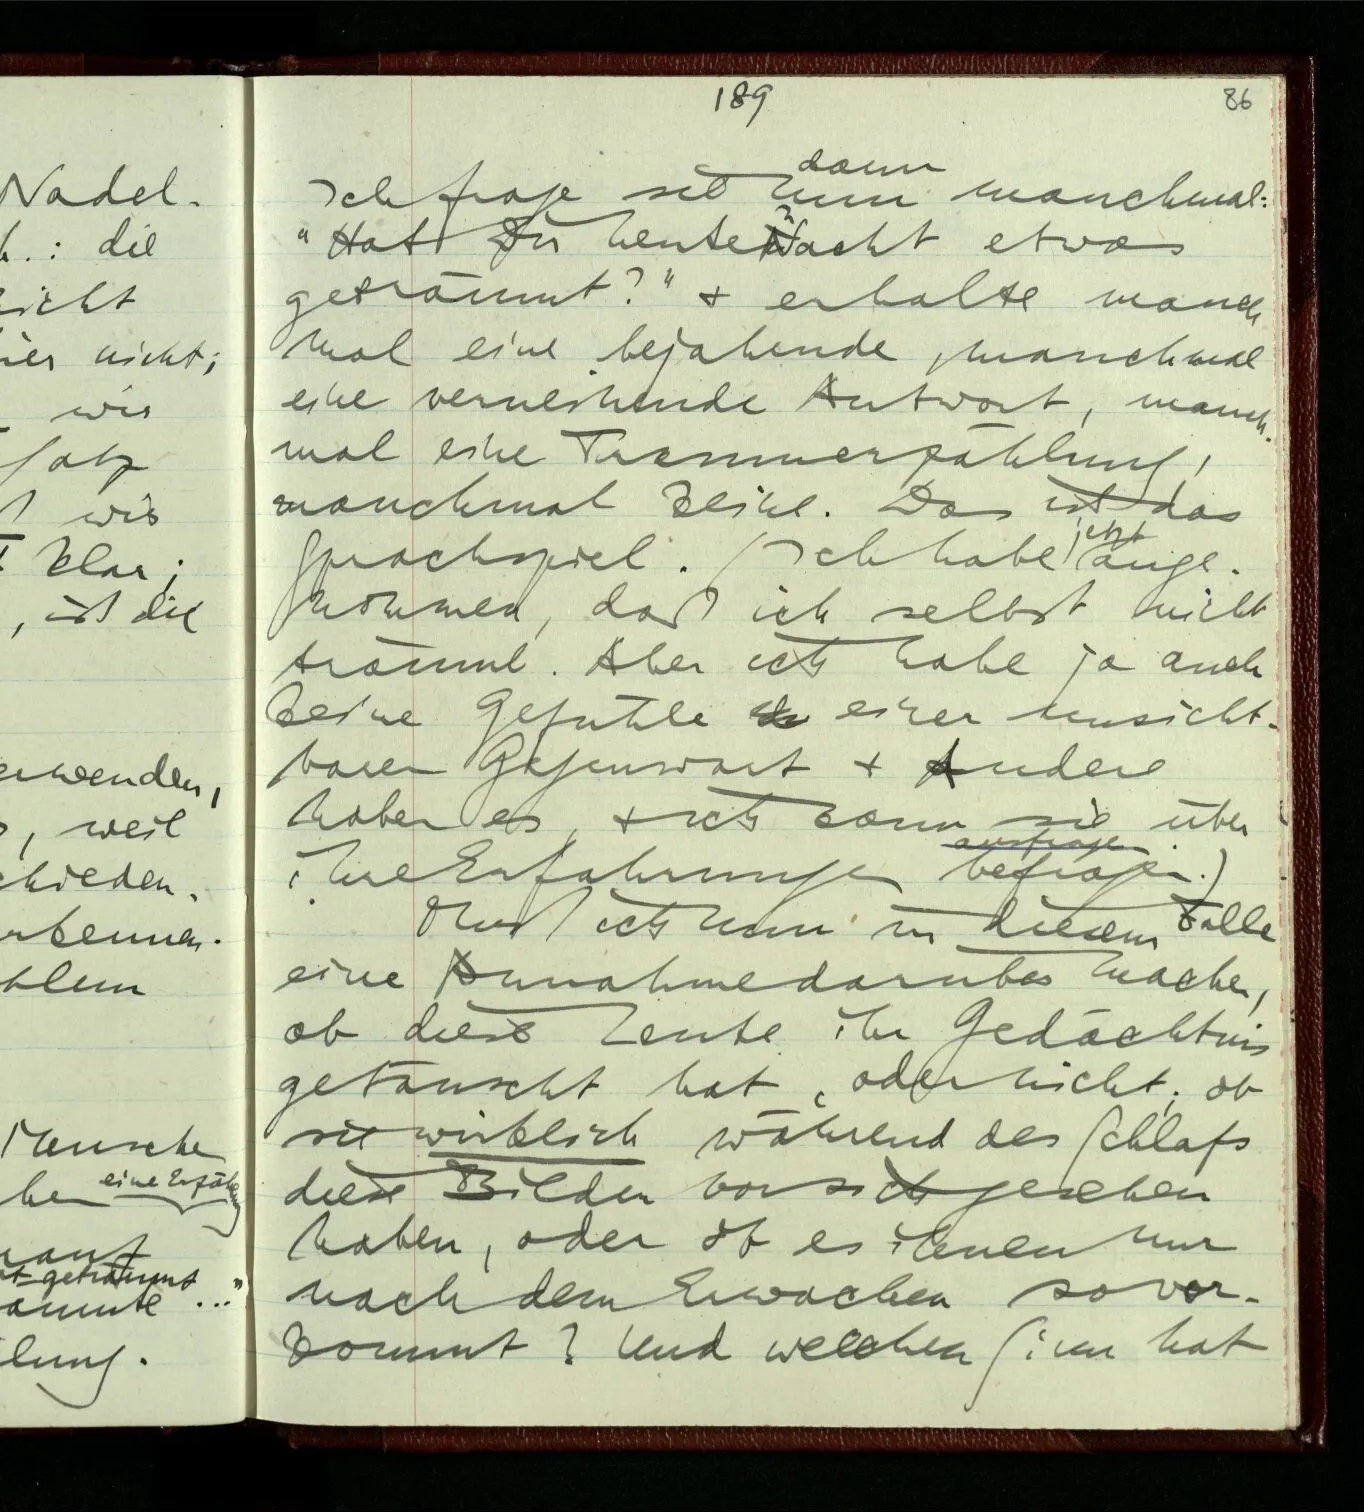 Nadel.
h.: die
nicht
hier nicht;
wir
Satz
wir
klar;
, ist die
verwenden,
, weil
schieden.
erkennen.
blem
Mensche
ben eine Erzähl
t geträumt
äumte ..."
lung.
189
86
dann
Ich frage sie nun manchmal:
"Hast Du heute Nacht etwas
geträumt?" + erhalte manch
mal eine bejahende, manchmal
eine verneinende Antwort, manch-
mal eine Traumerzählung,
manchmal keine. Das ist das
jetzt
Sprachspiel. (Ich habe ange-
nommen, daß ich selbst nicht
träume. Aber ich habe ja auch
keine Gefühle einer unsicht-
baren Gegenwart + Andere
haben es, + ich kann sie über
ausfragen
ihre Erfahrungen befragen.)
Muß ich nun in diesem Falle
eine Annahme darüber machen,
ob diese Leute ihr Gedächtnis
getäuscht hat, oder nicht; ob
sie wirklich während des Schlafs
diese Bilder vor sich gesehen
haben, oder ob es ihnen nur
nach dem Erwachen so vor-
kommt? Und welchen Sinn hat